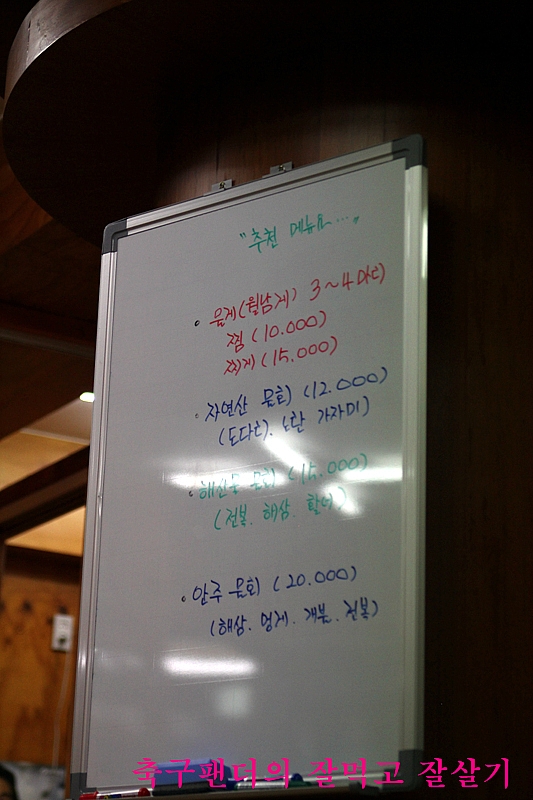 "추천 메뉴요..."
물게(월남게) 3~4마리
찜 (10.000)
찌게 (15.000)
자연산 물회 (12.000)
(도다리. 노란 가자미)
해산물 물회 (15.000)
(전복. 해삼. 활어)
안주 물회 (20.000)
(해삼. 멍게. 개불. 전복)
축구팬더의 잘먹고 잘살기